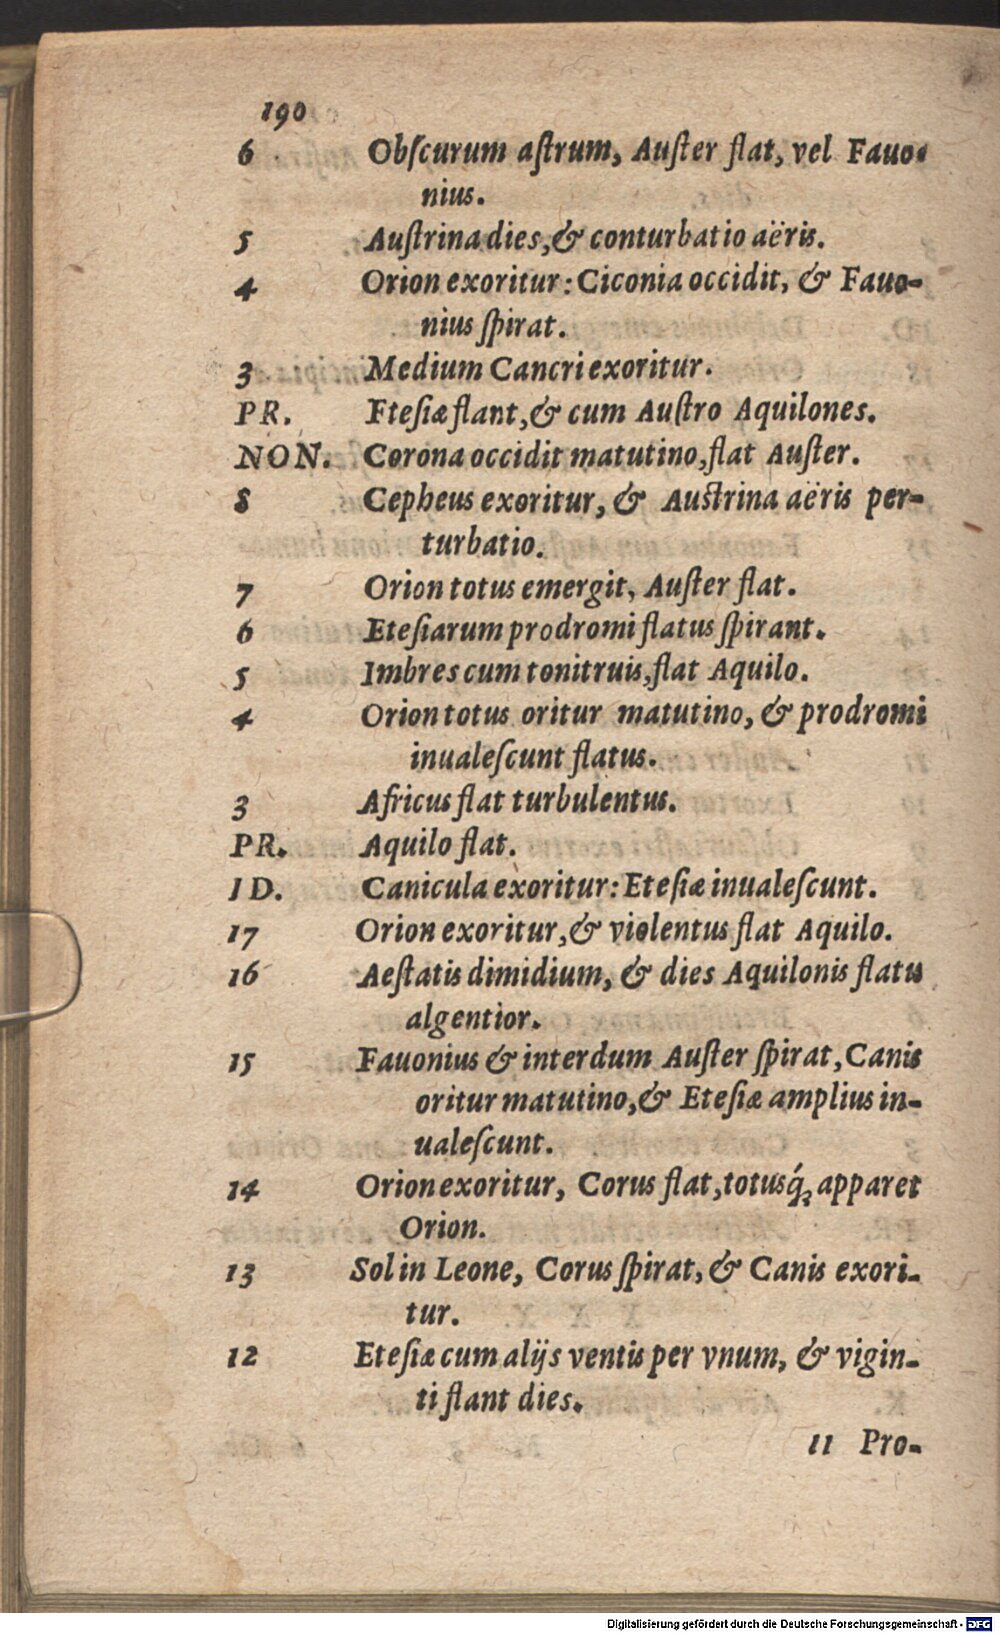 190
6 Obſcurum aſtrum, Auſter flat, vel Fauo-
nius.
5 Auſtrina dies, & conturbatio aëris.
4 Orion exoritur: Ciconia occidit, & Fauo-
nius ſpirat.
3 Medium Cancri exoritur.
PR. Fteſiæ flant, & cum Auſtro Aquilones.
NON. Corona occidit matutino, flat Auſter.
8 Cepheus exoritur, & Auſtrina aëris per-
turbatio.
7 Orion totus emergit, Auſter flat.
6 Eteſiarum prodromi flatus ſpirant.
5 Imbres cum tonitruis, flat Aquilo.
4 Orion totus oritur matutino, & prodromi
inualeſcunt flatus.
3 Africus flat turbulentus.
PR. Aquilo flat.
ID. Canicula exoritur: Eteſiæ inualeſcunt.
17 Orion exoritur, & violentus flat Aquilo.
16 Aeſtatis dimidium, & dies Aquilonis flatu
algentior.
15 Fauonius & interdum Auſter ſpirat, Canis
oritur matutino, & Eteſiæ amplius in-
ualeſcunt.
14 Orion exoritur, Corus flat, totusq́ꝫ apparet
Orion.
13 Sol in Leone, Corus ſpirat, & Canis exori-
tur.
12 Eteſiæ cum alijs ventis per vnum, & vigin-
ti flant dies.
11 Pro-
Digitalisierung gefördert durch die Deutsche Forschungsgemeinschaft - DFG